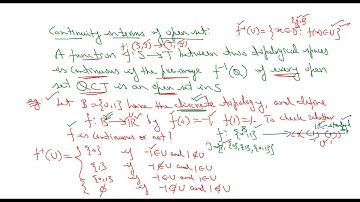 Continuity in terms of open set:
f⁻¹(U) = {x∈B : f(x)∈U}
A function f: S→T between two topological spaces
is continuous if the pre-image f⁻¹(Q) of every open
set Q⊂T is an open set in S
Let B={0,1} have the discrete topology, and define
f: B→ℝ by f(0)=-1, f(1)=1. To check whether
f is continuous or not!
f: {0,1}
f⁻¹(U) = { {0} if -1∈U and 1∉U
{1} if -1∉U and 1∈U
{0,1} if -1∈U and 1∈U
∅ if -1∉U and 1∉U